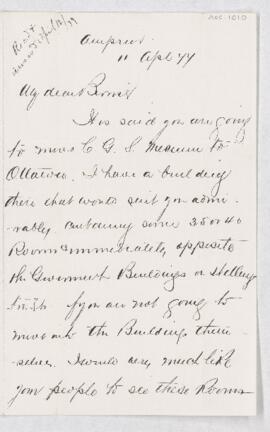 Acc. 1010
Rec'd &
Arnprior
11 Apl 77
My dear Bovril
It is said you are going
to move C G S Museum to
Ottawa. I have a building
there that would suit you admi-
-rably containing some 35 or 40
Rooms immediately opposite
the Government Buildings on Wellington
St. If you are not going to
move into the Building them-
-selves. I would very much like
your people to see these Rooms